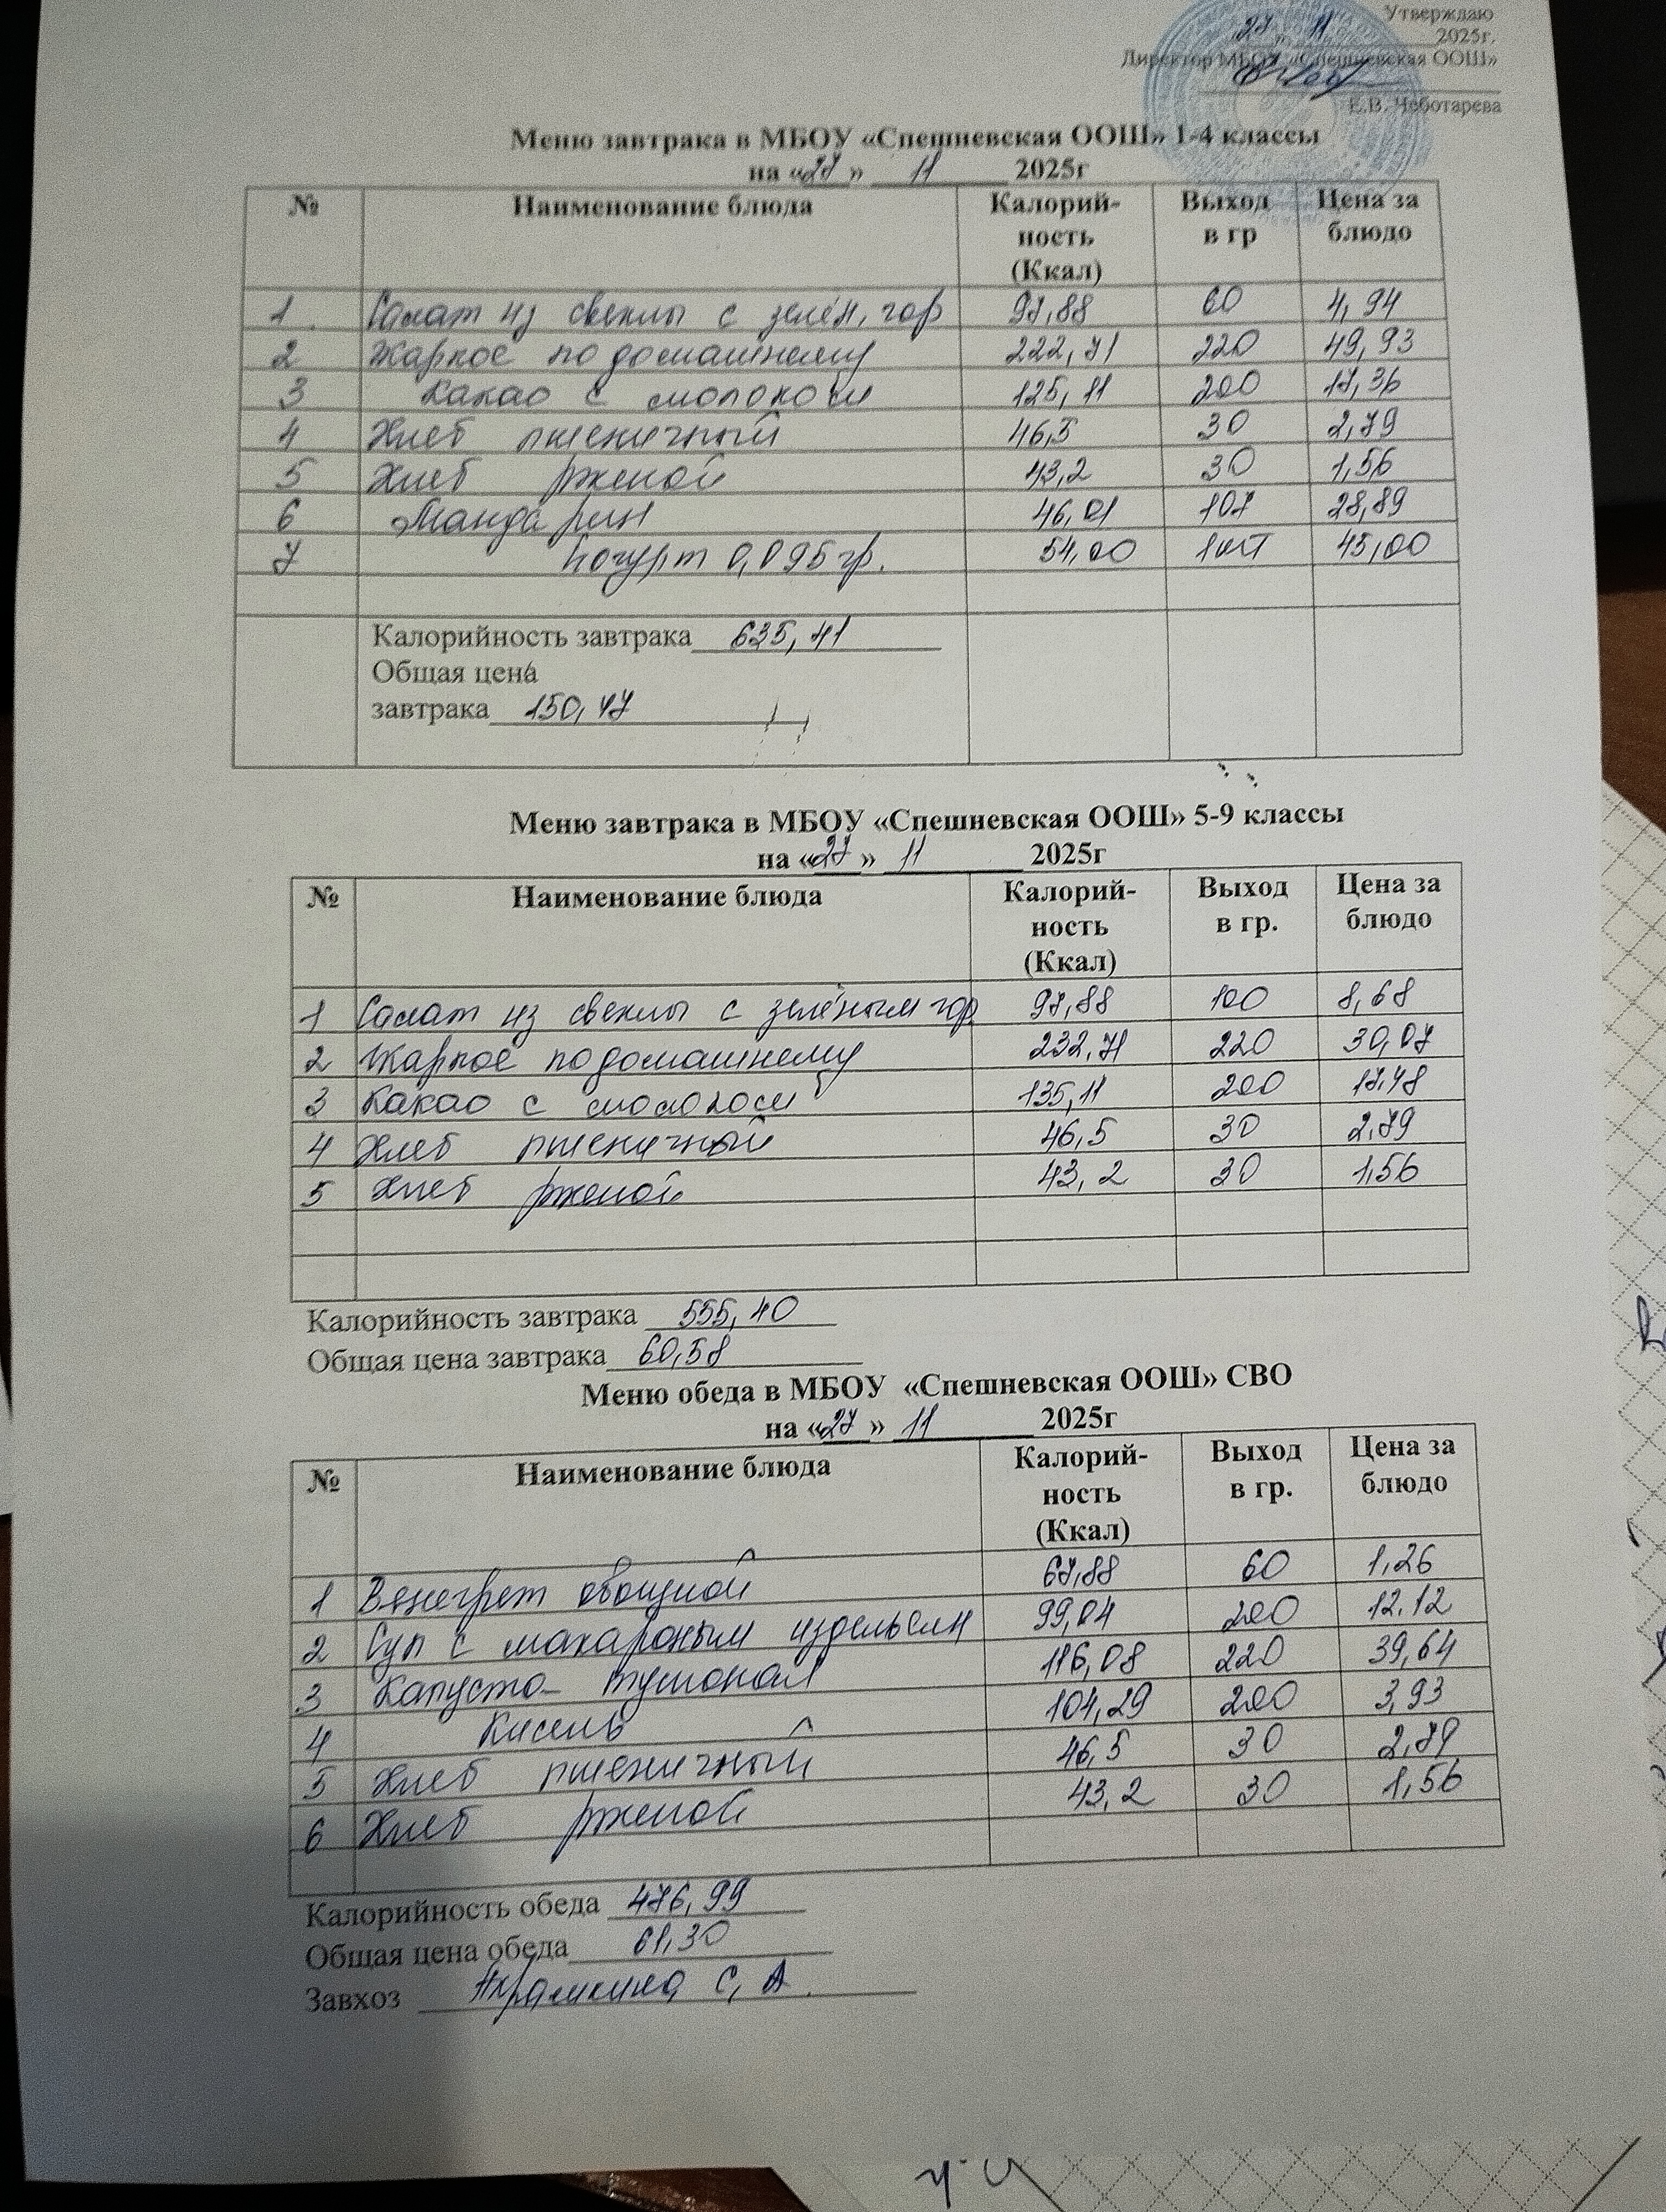 Утверждаю
27 11 2025г.
Директор МБОУ «Спешневская ООШ»
Е.В. Чеботарева
Меню завтрака в МБОУ «Спешневская ООШ» 1-4 классы
на «27» 11 2025г
№ Наименование блюда Калорий-ность (Ккал) Выход в гр Цена за блюдо
1. Салат из свеклы с зелён, гор 97,88 60 4,94
2 Жаркое по домашнему 222,71 220 49,93
3 Какао с молоком 125,11 200 17,36
4 Хлеб пшеничный 46,5 30 2,79
5 Хлеб ржаной 43,2 30 1,56
6 Мандарин 46,01 107 28,89
7 Йогурт 0,095гр. 54,00 1шт 45,00
Калорийность завтрака 635,41
Общая цена
завтрака 150,47
Меню завтрака в МБОУ «Спешневская ООШ» 5-9 классы
на «27» 11 2025г
№ Наименование блюда Калорий-ность (Ккал) Выход в гр. Цена за блюдо
1 Салат из свеклы с зелёным гор. 97,88 100 8,68
2 Жаркое по домашнему 232,71 220 30,07
3 Какао с молоком 135,11 200 17,48
4 Хлеб пшеничный 46,5 30 2,79
5 Хлеб ржаной 43,2 30 1,56
Калорийность завтрака 555,40
Общая цена завтрака 60,58
Меню обеда в МБОУ «Спешневская ООШ» СВО
на «27» 11 2025г
№ Наименование блюда Калорий-ность (Ккал) Выход в гр. Цена за блюдо
1 Венегрет овощной 67,88 60 1,26
2 Суп с макароным издельем 99,04 200 12,12
3 Капуста тушоная 116,08 220 39,64
4 Кисель 104,29 200 3,93
5 Хлеб пшеничный 46,5 30 2,79
6 Хлеб ржаной 43,2 30 1,56
Калорийность обеда 476,99
Общая цена обеда 61,30
Завхоз С, А.